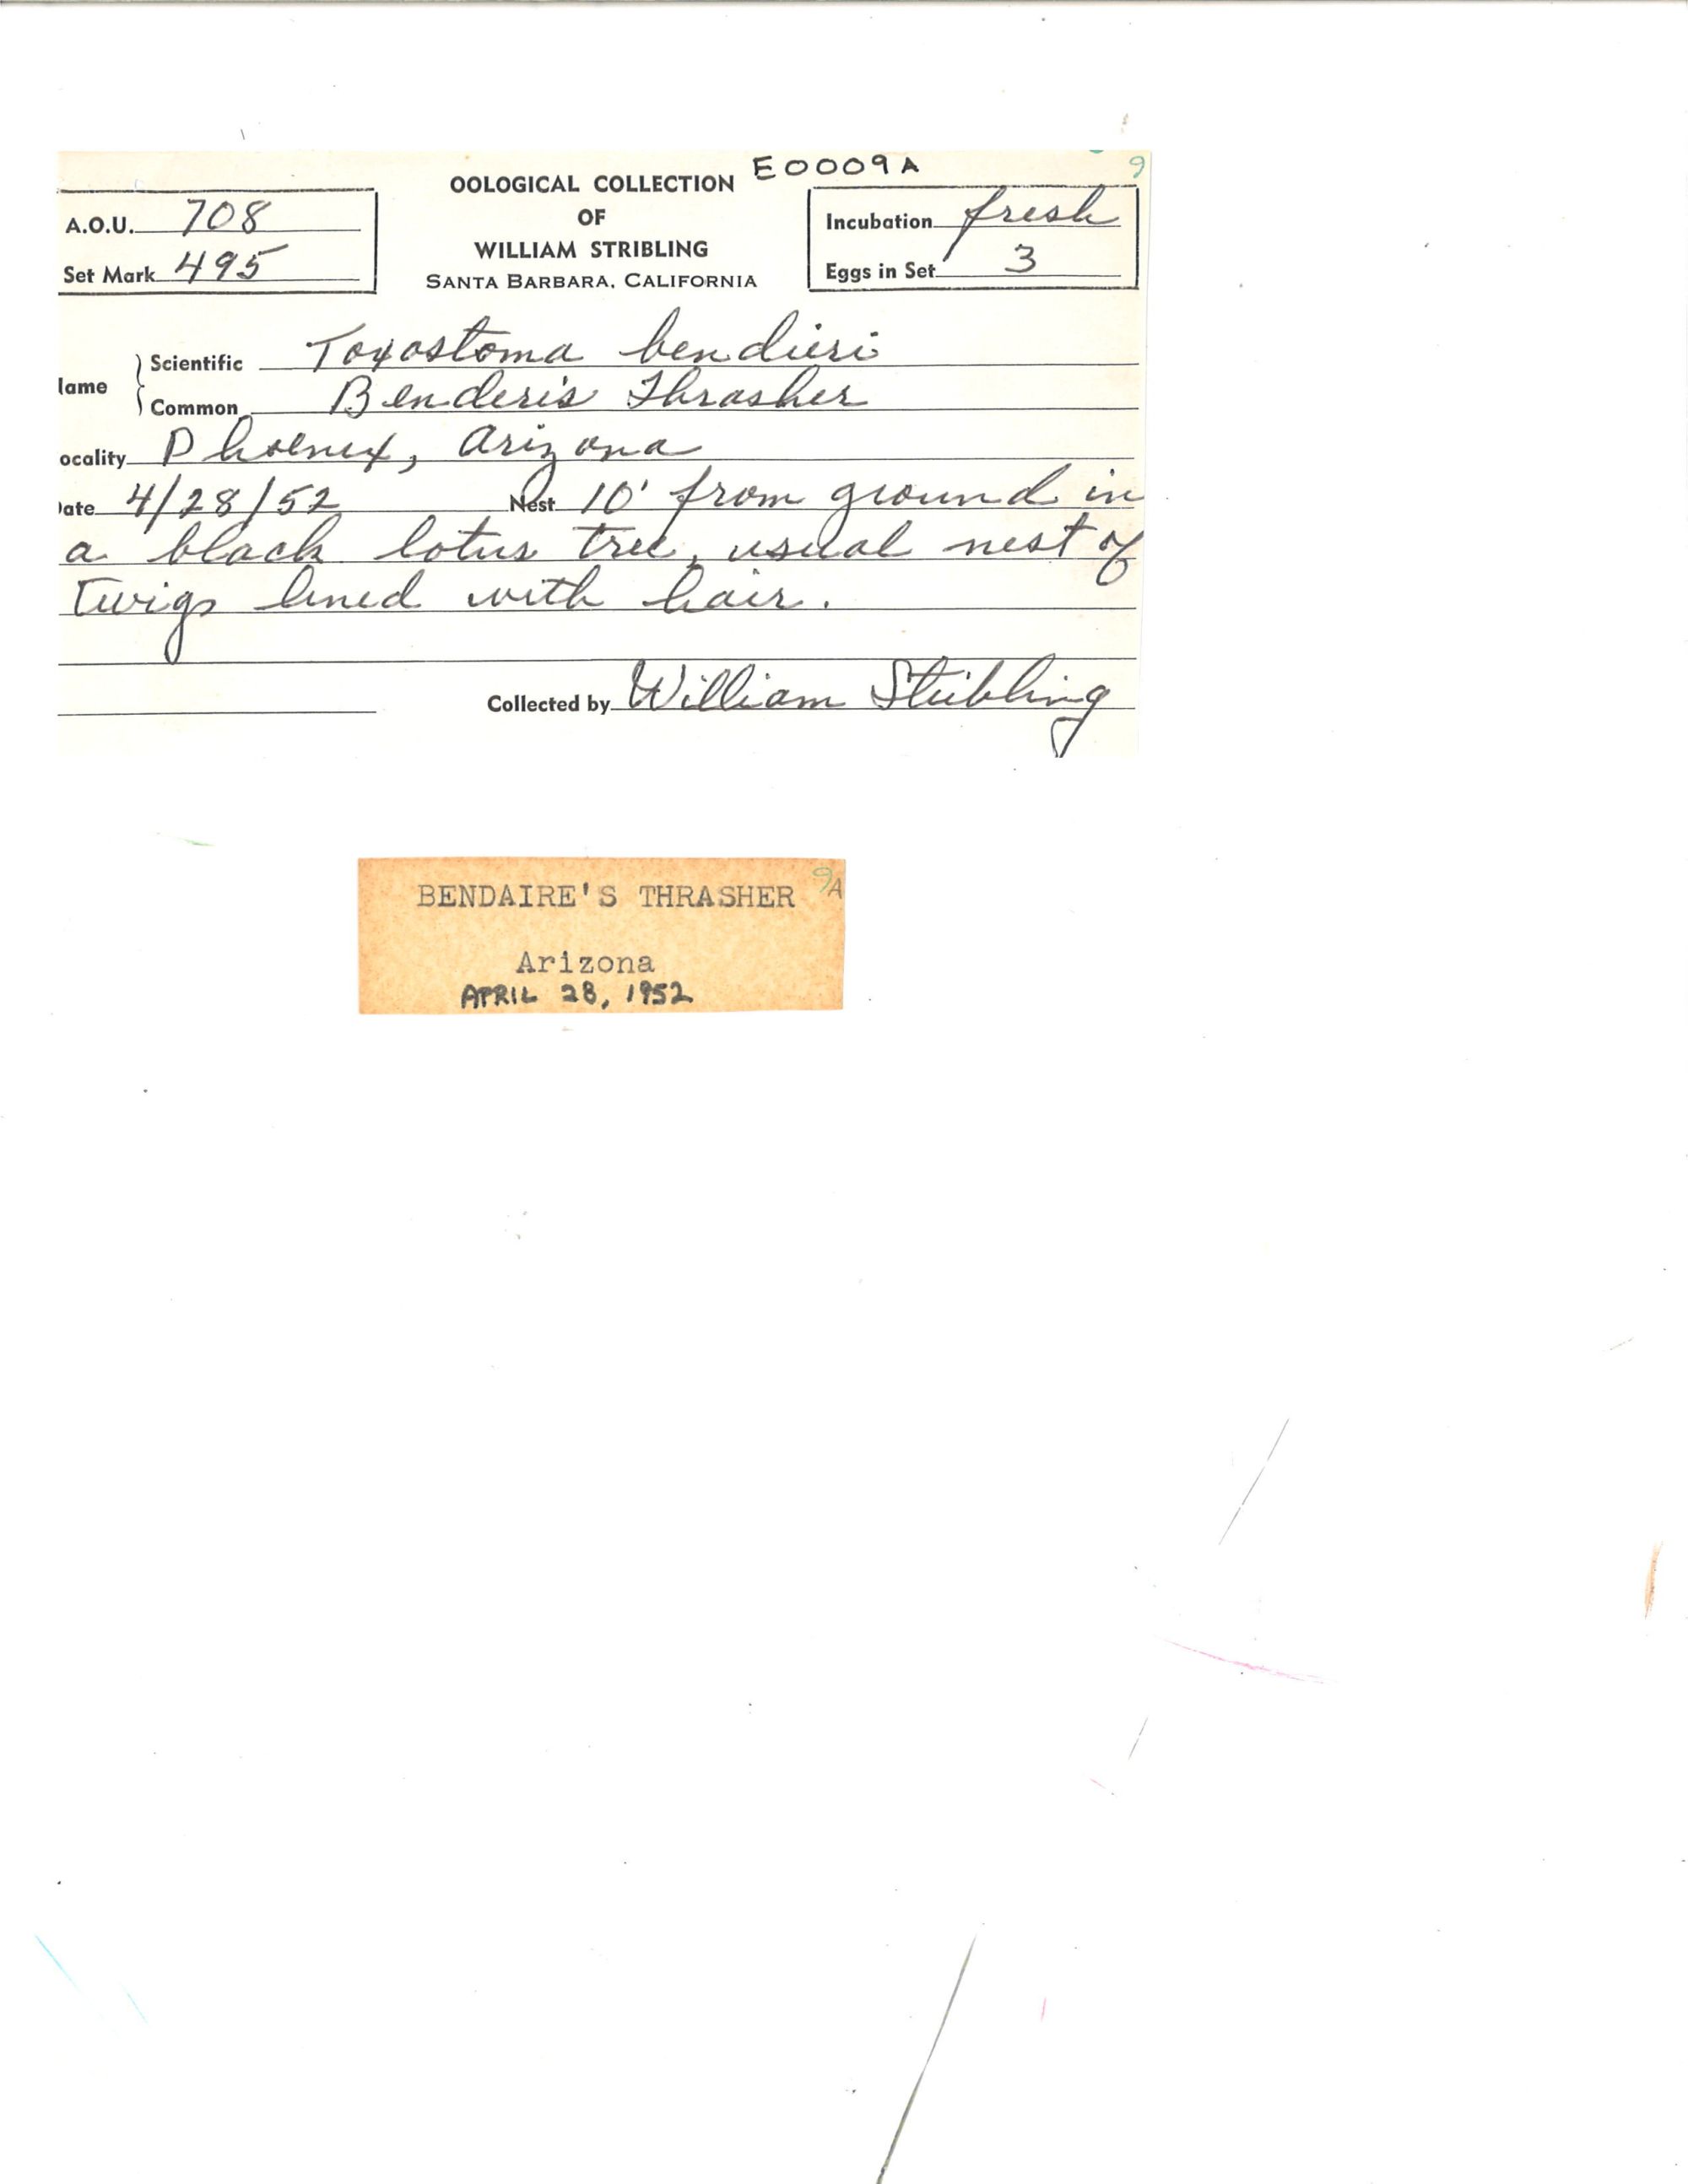 E0009A 9
OOLOGICAL COLLECTION
OF
WILLIAM STRIBLING
SANTA BARBARA, CALIFORNIA
A.O.U. 708
Set Mark 495
Incubation fresh
Eggs in Set 3
lame
Scientific Toxostoma bendieri
Common Benderis Thrasher
ocality Phoenix, Arizona
ate 4/28/52 Nest 10' from ground in
a black lotus tree, usual nest of
twigs lined with hair.
Collected by William Stribling
BENDAIRE'S THRASHER 9A
Arizona
APRIL 28, 1952